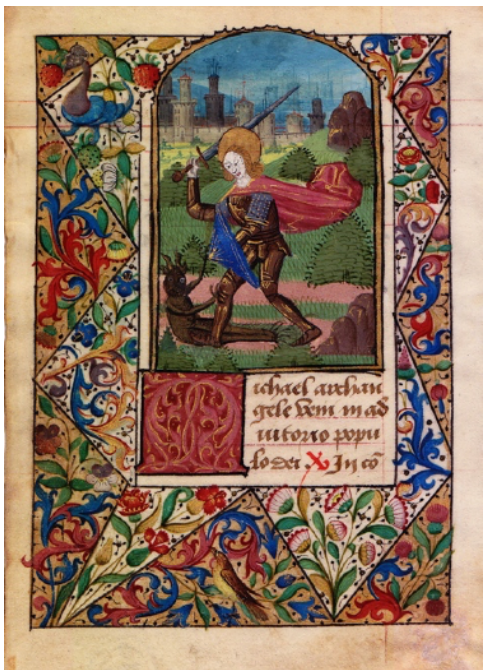 Michael archan
gele veni in ad
iutorio popu
lo dei In co